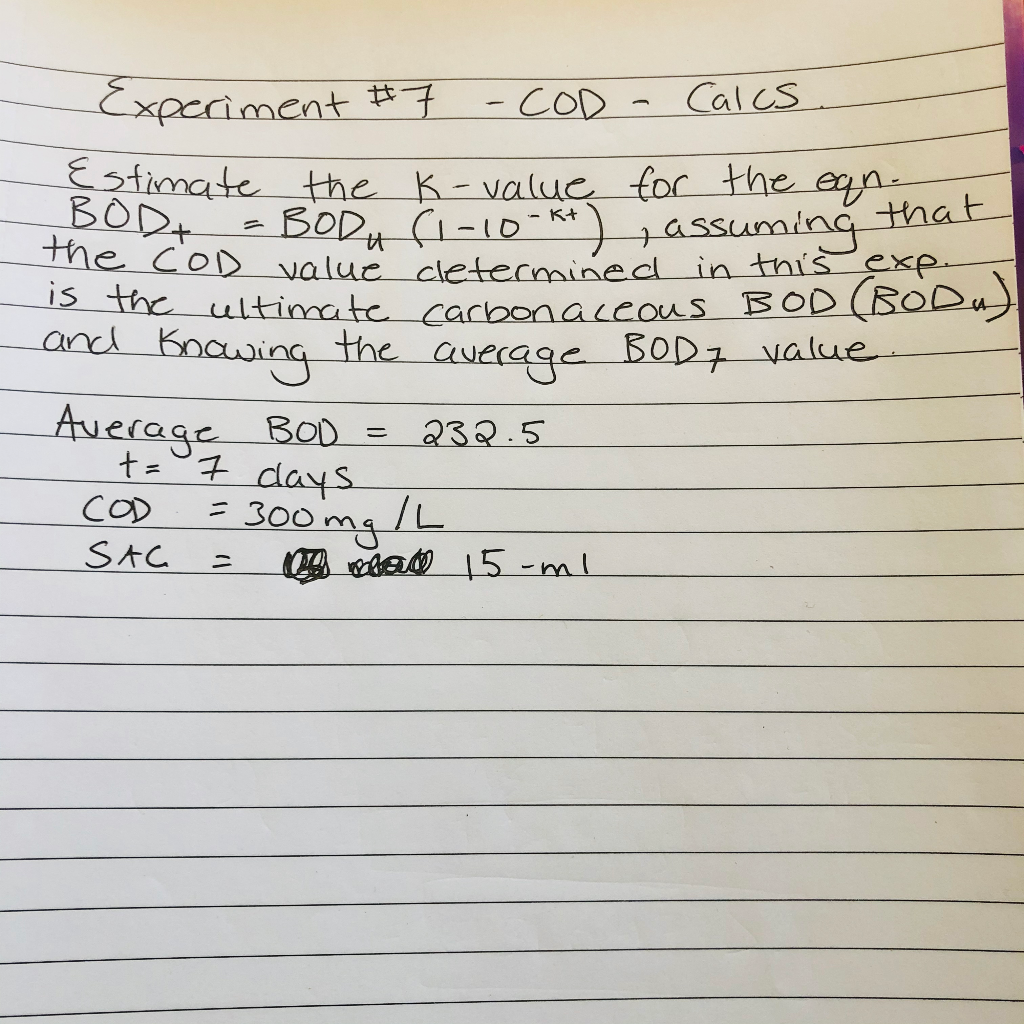 Experiment #7 - COD - Calcs.
Estimate the K-value for the eqn.
BODt = BODu (1-10^-Kt), assuming that
the COD value determined in this exp.
is the ultimate carbonaceous BOD (BODu)
and knowing the average BOD7 value.
Average BOD = 232.5
t= 7 days
COD = 300mg/L
= 15-ml